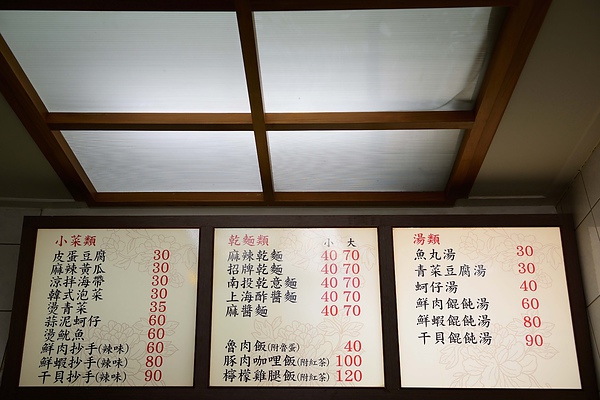 小菜類
皮蛋豆腐 30
麻辣黃瓜 30
涼拌海帶 30
韓式泡菜 30
燙青菜 35
蒜泥蚵仔 60
燙魷魚 60
鮮肉抄手(辣味) 60
鮮蝦抄手(辣味) 80
干貝抄手(辣味) 90
乾麵類 小 大
麻辣乾麵 40 70
招牌乾麵 40 70
南投乾意麵 40 70
上海酢醬麵 40 70
麻醬麵 40 70
魯肉飯(附魯蛋) 40
豚肉咖哩飯(附紅茶) 100
檸檬雞腿飯(附紅茶) 120
湯類
魚丸湯 30
青菜豆腐湯 30
蚵仔湯 40
鮮肉餛飩湯 60
鮮蝦餛飩湯 80
干貝餛飩湯 90